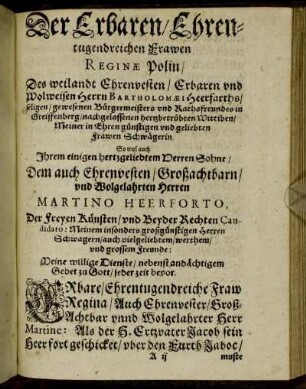 Der Erbaren/ Ehren-
tugendreichen Frawen
REGINÆ Polin/
Des weilandt Ehrenvesten/ Erbaren vnd
Wolweisen Herrn BARTHOLOMÆI Heerfarths/
seligen/ gewesenen Bürgermeisters vnd Rathsfreundes in
Greiffenberg/ nachgelassenen hertzberübten Wittiben/
Meiner in Ehren günstigen vnd geliebten
Frawen Schwägerin.
So wol auch
Ihrem einigen hertzgeliebtem Herren Sohne/
Dem auch Ehrenvesten/ Großachtbarn/
vnd Wolgelahrten Herren
MARTINO HEERFORTO,
Der Freyen Künsten/ vnd Beyder Rechten Can-
didato: Meinem insonders großgünstigen Herren
Schwagern/ auch vielgeliebtem/ werthem/
vnd grossem Freunde:
Meine willige Dienste/ nebenst andächtigem
Gebet zu Gott/ jeder zeit bevor.
ERbare/ Ehrentugendreiche Fraw
Regina/ Auch Ehrenvester/ Groß-
Achtbar vnnd Wolgelahrter Herr
Martine: Als der H. Ertzvater Jacob sein
Heer fort geschicket/ vber den Furth Jaboc/
A ij
muste